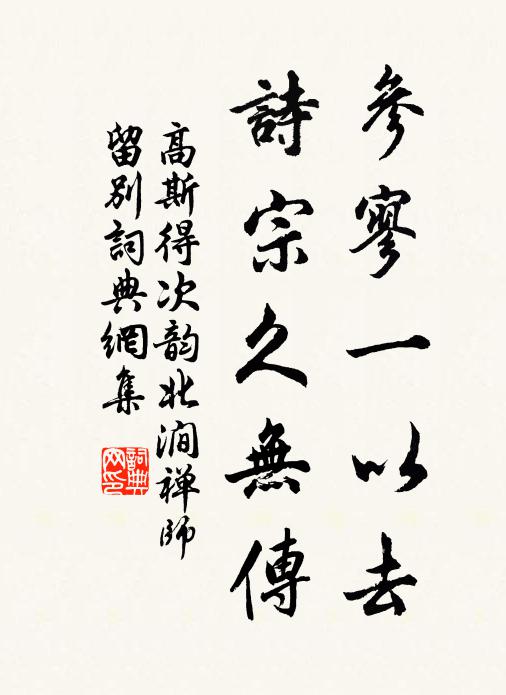 參寥一以去
詩宗久無傳
高斯得次韵北澗禅師
留別詞典網集
詞典网印